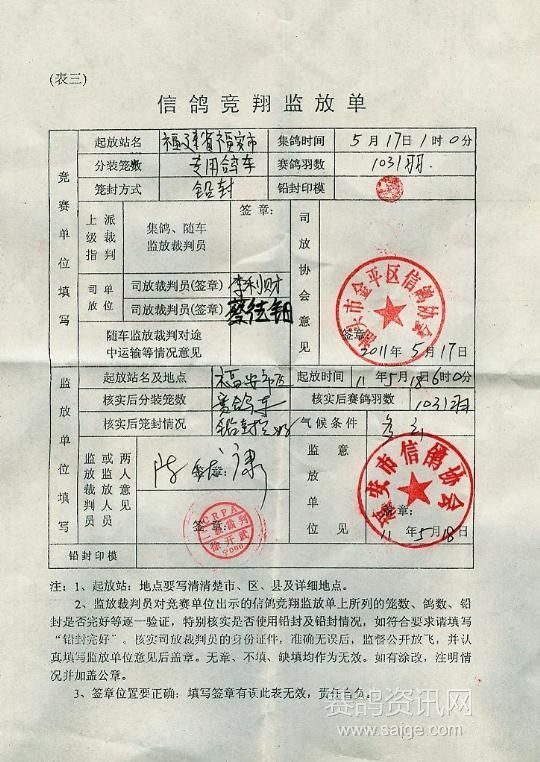 (表三)
信鸽竞翔监放单
竞赛单位填写
起放站名 福建省福安市 集鸽时间 5月17日1时0分
分装笼数 专用鸽车 赛鸽羽数 1031羽
笼封方式 铅封 铅封印模
上级指派裁判 集鸽、随车监放裁判员 签章:
司放单位 司放裁判员(签章) 李利财
司放裁判员(签章)
随车监放裁判对途中运输等情况意见
司放协会意见
汕头市金平区信鸽协会
签章:
2011年5月17日
监放单位填写
起放站名及地点 福安市区 起放时间 11年5月18日6时0分
核实后分装笼数 赛鸽车 核实后赛鸽羽数 1031羽
核实后笼封情况 铅封完好 气候条件 多云
监放或监裁放判人员 两人意见
签章:
CRPA
裁判
徐开武
监放单位意见
福安市信鸽协会
签章:
11年5月18日
铅封印模
注:1、起放站:地点要写清清楚市、区、县及详细地点。
2、监放裁判员对竞赛单位出示的信鸽竞翔监放单上所列的笼数、鸽数、铅
封是否完好等逐一验证,特别核实是否使用铅封及铅封情况,如符合要求请填写
“铅封完好”。核实司放裁判员的身份证件,准确无误后,监督公开放飞,并认
真填写监放单位意见后盖章。无章、不填、缺填均作为无效。如有涂改,注明情
况并加盖公章。
3、签章位置要正确:填写签章有误此表无效,责任自负。
赛鸽资讯网
www.saige.com